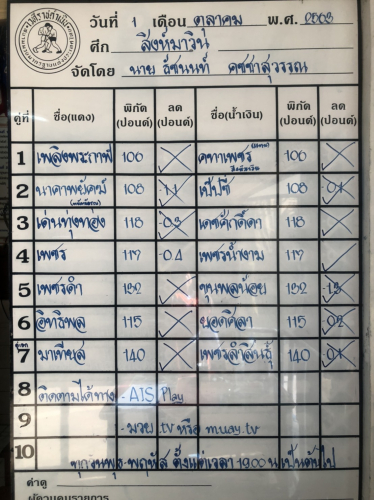 วันที่ 1 เดือน ตุลาคม พ.ศ. 2563
ศึก สิงห์มาวิน
จัดโดย นาย ธัชนนท์ คชชาสุวรรณ
คู่ที่ ชื่อ(แดง) พิกัด (ปอนด์) ลด (ปอนด์) ชื่อ(น้ำเงิน) พิกัด (ปอนด์) ลด (ปอนด์)
1 เพลิงพระกาฬ 106 คทาเพชร 106
2 นาคาพยัคฆ์ 108 11 เป๊ปซี่ 108 04
3 เด่นทุ่งทอง 118 03 เดชศักดิ์ดา 118
4 เพชร 117 04 เพชรน้ำงาม 117
5 เพชรดำ 132 ขุนพลน้อย 132 13
6 อิทธิพล 115 ยอดศิลา 115 02
7 มาเทียส 140 เพชรลำสินธุ์ 140 04
8 ติดตามได้ทาง - AIS Play
9 - มวย.tv หรือ muay.tv
10 ทุกวันพุธ-พฤหัส ตั้งแต่เวลา 19.00 น. เป็นต้นไป
ค่าดู
ผู้ควบคุมรายการ